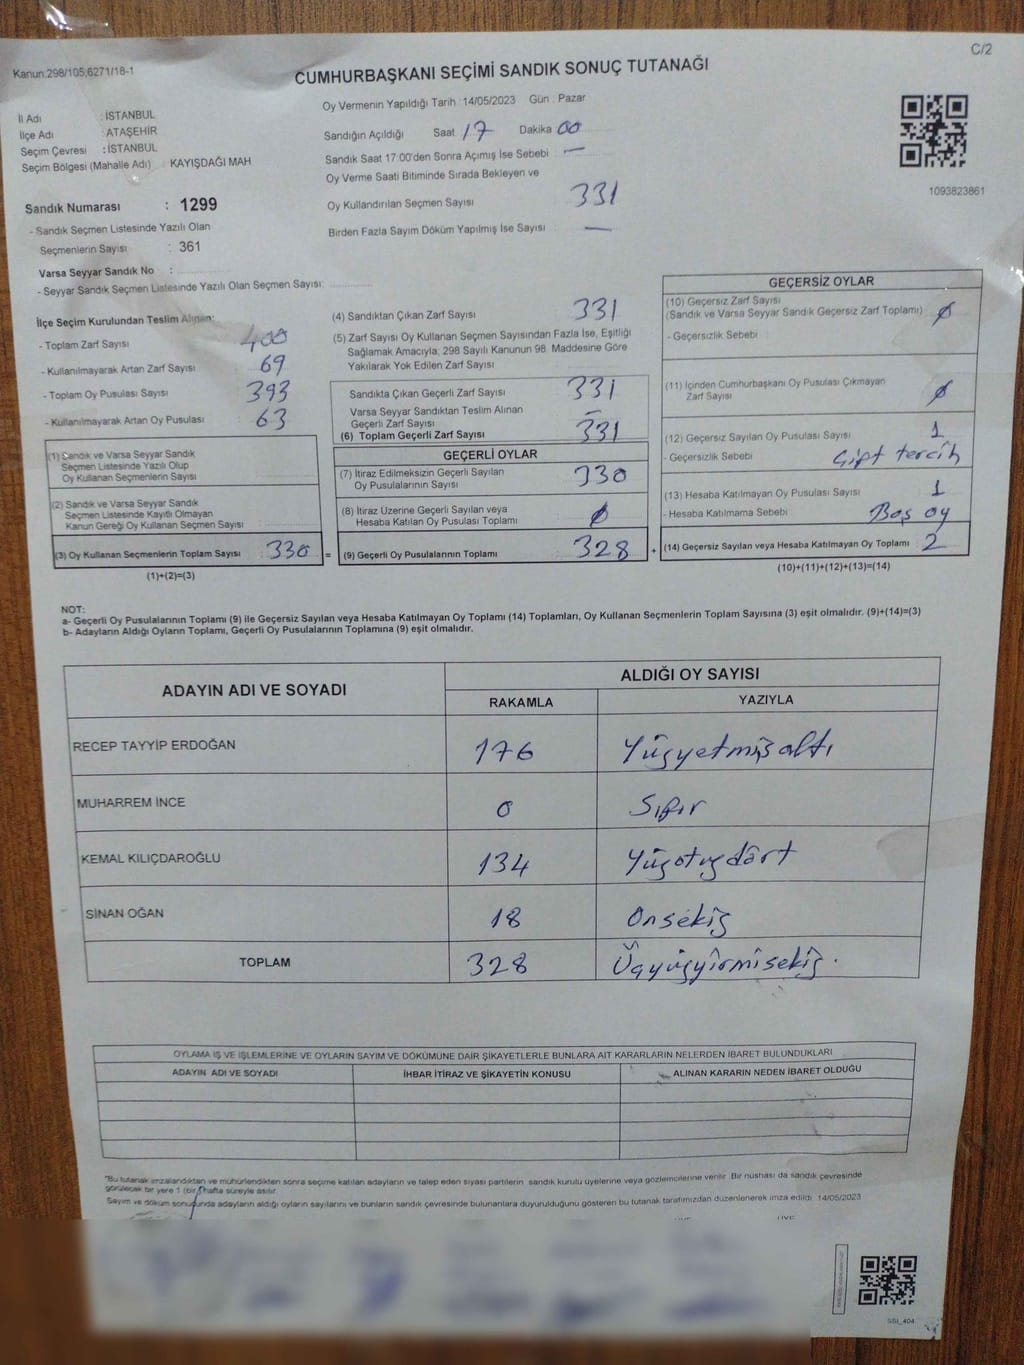 C/2
Kanun:298/105,6271/18-1
CUMHURBAŞKANI SEÇİMİ SANDIK SONUÇ TUTANAĞI
İl Adı : İSTANBUL
İlçe Adı : ATAŞEHİR
Seçim Çevresi : İSTANBUL
Seçim Bölgesi (Mahalle Adı) : KAYIŞDAĞI MAH
Sandık Numarası : 1299
- Sandık Seçmen Listesinde Yazılı Olan
Seçmenlerin Sayısı : 361
Varsa Seyyar Sandık No :
- Seyyar Sandık Seçmen Listesinde Yazılı Olan Seçmen Sayısı:
Oy Vermenin Yapıldığı Tarih : 14/05/2023 Gün : Pazar
Sandığın Açıldığı Saat 17 Dakika 00
Sandık Saat 17:00'den Sonra Açımış İse Sebebi : —
Oy Verme Saati Bitiminde Sırada Bekleyen ve
Oy Kullandırılan Seçmen Sayısı 331
Birden Fazla Sayım Döküm Yapılmış İse Sayısı : —
1093823861
İlçe Seçim Kurulundan Teslim Alınan:
- Toplam Zarf Sayısı 400
- Kullanılmayarak Artan Zarf Sayısı : 69
- Toplam Oy Pusulası Sayısı : 393
- Kullanılmayarak Artan Oy Pusulası : 63
(1) Sandık ve Varsa Seyyar Sandık
Seçmen Listesinde Yazılı Olup
Oy Kullanan Seçmenlerin Sayısı :
(2) Sandık ve Varsa Seyyar Sandık
Seçmen Listesinde Kayıtlı Olmayan
Kanun Gereği Oy Kullanan Seçmen Sayısı :
(3) Oy Kullanan Seçmenlerin Toplam Sayısı 330 =
(1)+(2)=(3)
(4) Sandıktan Çıkan Zarf Sayısı : 331
(5) Zarf Sayısı Oy Kullanan Seçmen Sayısından Fazla İse, Eşitliği
Sağlamak Amacıyla, 298 Sayılı Kanunun 98. Maddesine Göre
Yakılarak Yok Edilen Zarf Sayısı :
Sandıkta Çıkan Geçerli Zarf Sayısı : 331
Varsa Seyyar Sandıktan Teslim Alınan
Geçerli Zarf Sayısı : –
(6) Toplam Geçerli Zarf Sayısı : 331
GEÇERLİ OYLAR
(7) İtiraz Edilmeksizin Geçerli Sayılan
Oy Pusulalarının Sayısı : 330
(8) İtiraz Üzerine Geçerli Sayılan veya
Hesaba Katılan Oy Pusulası Toplamı : 0
(9) Geçerli Oy Pusulalarının Toplamı : 328 +
GEÇERSİZ OYLAR
(10) Geçersiz Zarf Sayısı
(Sandık ve Varsa Seyyar Sandık Geçersiz Zarf Toplamı) : 0
- Geçersizlik Sebebi :
(11) İçinden Cumhurbaşkanı Oy Pusulası Çıkmayan
Zarf Sayısı : 0
(12) Geçersiz Sayılan Oy Pusulası Sayısı : 1
- Geçersizlik Sebebi : Çift tercih
(13) Hesaba Katılmayan Oy Pusulası Sayısı : 1
- Hesaba Katılmama Sebebi : Boş oy
(14) Geçersiz Sayılan veya Hesaba Katılmayan Oy Toplamı : 2
(10)+(11)+(12)+(13)=(14)
NOT:
a- Geçerli Oy Pusulalarının Toplamı (9) ile Geçersiz Sayılan veya Hesaba Katılmayan Oy Toplamı (14) Toplamları, Oy Kullanan Seçmenlerin Toplam Sayısına (3) eşit olmalıdır. (9)+(14)=(3)
b- Adayların Aldığı Oyların Toplamı, Geçerli Oy Pusulalarının Toplamına (9) eşit olmalıdır.
ADAYIN ADI VE SOYADI ALDIĞI OY SAYISI
RAKAMLA YAZIYLA
RECEP TAYYİP ERDOĞAN 176 Yüzyetmişaltı
MUHARREM İNCE 0 Sıfır
KEMAL KILIÇDAROĞLU 134 Yüzotuzdört
SİNAN OĞAN 18 Onsekiz
TOPLAM 328 Üçyüzyirmisekiz.
OYLAMA İŞ VE İŞLEMLERİNE VE OYLARIN SAYIM VE DÖKÜMÜNE DAİR ŞİKAYETLERLE BUNLARA AİT KARARLARIN NELERDEN İBARET BULUNDUKLARI
ADAYIN ADI VE SOYADI İHBAR İTİRAZ VE ŞİKAYETİN KONUSU ALINAN KARARIN NEDEN İBARET OLDUĞU
"Bu tutanak imzalandıktan ve mühürlendikten sonra seçime katılan adayların ve talep eden siyasi partilerin sandık kurulu üyelerine veya gözlemcilerine verilir. Bir nüshası da sandık çevresinde
görülecek bir yere 1 (bir) hafta süreyle asılır.
Sayım ve döküm sonucunda adayların aldığı oyların sayılarını ve bunların sandık çevresinde bulunanlara duyurulduğunu gösteren bu tutanak tarafımızdan düzenlenerek imza edildi. 14/05/2023
SSI_404